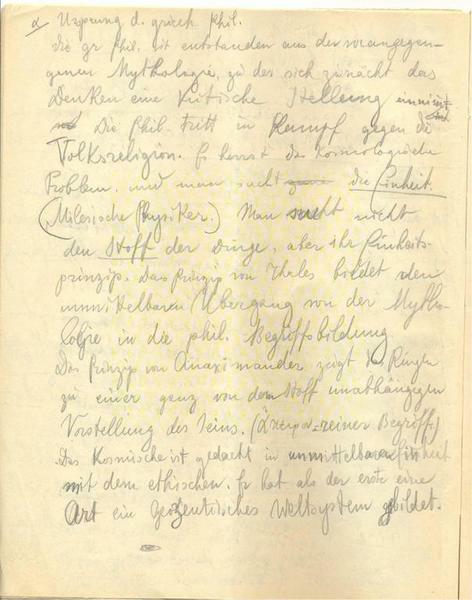 α Ursprung d. griech Phil.
die gr Phil. ist entstanden aus der vorangegan-
genen Mythologie, zu der sich zunächst das
Denken eine kritische Stellung einnimmt
Die Phil. tritt in Kampf gegen die
Volksreligion. Es herrst das kosmologische
Problem, und man sucht die Einheit.
(Milesische Physiker.) Man sucht nicht
den Stoff der Dinge, aber ihr Einheits-
prinzip. Das Prinzip von Thales bildet den
unmittelbaren Übergang von der Mytho-
logie in die phil. Begriffsbildung
Das Prinzip von Anaximander zeigt das Ringen
zu einer ganz von dem Stoff unabhängigen
Vorstellung des Seins. (ἄπειρον=reiner Begriff)
Das Kosmische ist gedacht in unmittelbarer Einheit
mit dem ethischen. Er hat als der erste eine
Art ein geozentrisches Weltsystem gebildet.